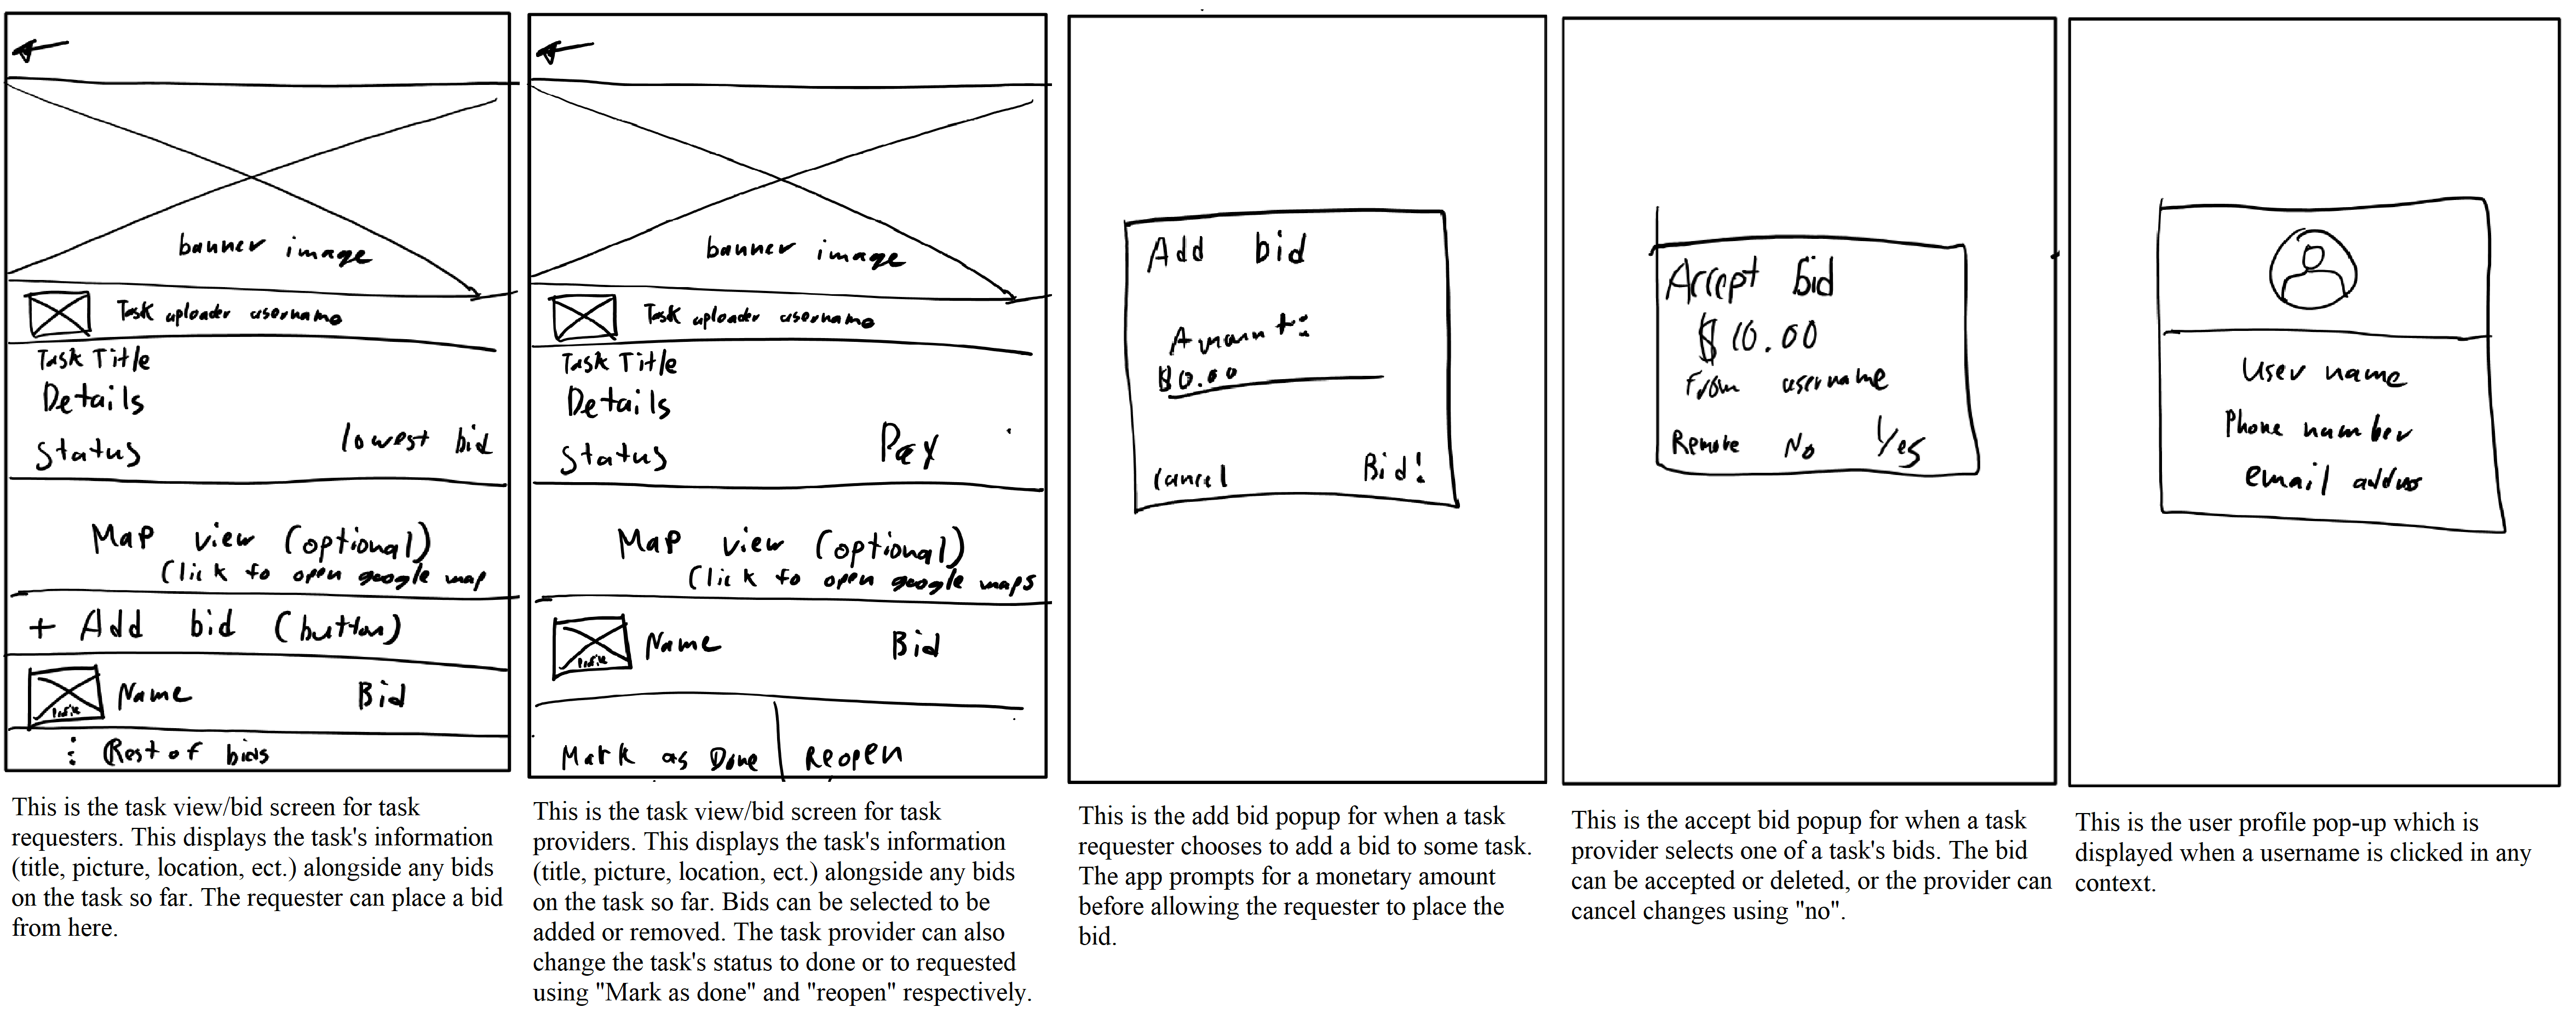 banner image
Task uploader username
Task Title
Details
Status
lowest bid
Map view (optional)
Click to open google map
+ Add bid (button)
Profile
Name
Bid
: Rest of bids
This is the task view/bid screen for task
requesters. This displays the task's information
(title, picture, location, ect.) alongside any bids
on the task so far. The requester can place a bid
from here.
banner image
Task uploader username
Task Title
Details
Status
Pay
Map view (optional)
Click to open google maps
Profile
Name
Bid
Mark as Done
Reopen
This is the task view/bid screen for task
providers. This displays the task's information
(title, picture, location, ect.) alongside any bids
on the task so far. Bids can be selected to be
added or removed. The task provider can also
change the task's status to done or to requested
using "Mark as done" and "reopen" respectively.
Add bid
Amount:
$0.00
Cancel
Bid!
This is the add bid popup for when a task
requester chooses to add a bid to some task.
The app prompts for a monetary amount
before allowing the requester to place the
bid.
Accept bid
$10.00
From username
Remove No Yes
This is the accept bid popup for when a task
provider selects one of a task's bids. The bid
can be accepted or deleted, or the provider can
cancel changes using "no".
User name
Phone number
email address
This is the user profile pop-up which is
displayed when a username is clicked in any
context.